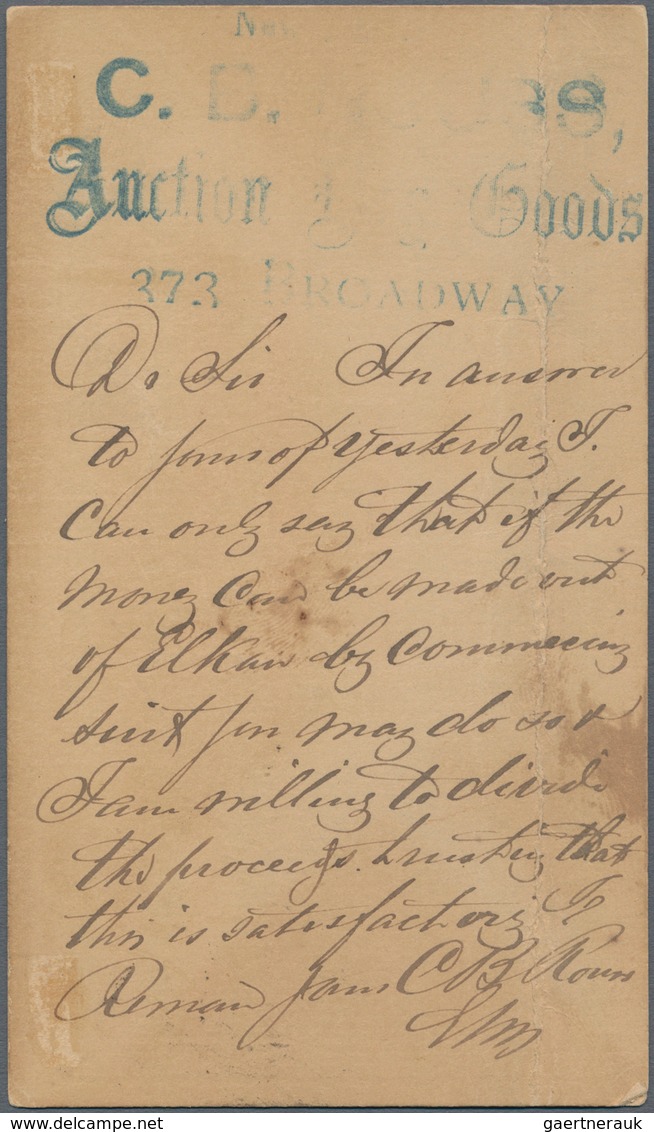 C. B.
Auction Goods
373 BROADWAY
Dr Sir In answer
to yours of yesterday I.
Can only say that if the
money can be made out
of Elkan by Commecing
suit you may do so &
I am willing to divide
the proceeds. trusting that
this is satisfactory I
Remain yours C B Rouss
© gaertnerauk / Fotoversicherung.com